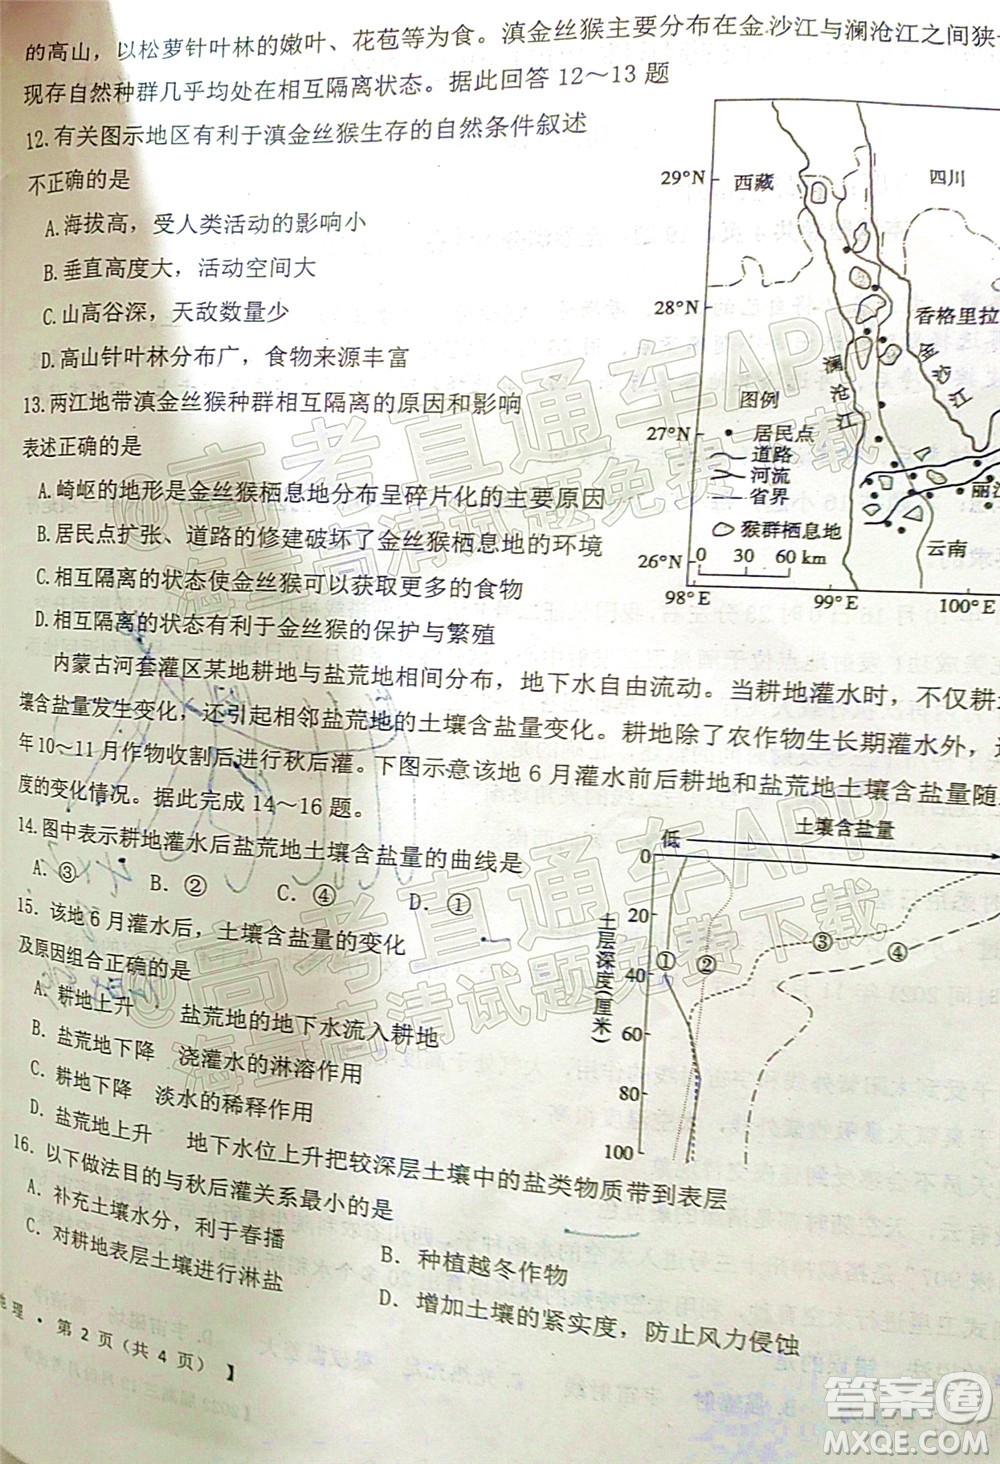 的高山，以松萝针叶林的嫩叶、花苞等为食。滇金丝猴主要分布在金沙江与澜沧江之间狭
现存自然种群几乎均处在相互隔离状态。据此回答12～13题
12.有关图示地区有利于滇金丝猴生存的自然条件叙述
不正确的是
A.海拔高，受人类活动的影响小
B.垂直高度大，活动空间大
C.山高谷深，天敌数量少
D.高山针叶林分布广，食物来源丰富
13.两江地带滇金丝猴种群相互隔离的原因和影响
表述正确的是
A.崎岖的地形是金丝猴栖息地分布呈碎片化的主要原因
B.居民点扩张、道路的修建破坏了金丝猴栖息地的环境
C.相互隔离的状态使金丝猴可以获取更多的食物
D.相互隔离的状态有利于金丝猴的保护与繁殖
29°N
28°N
27°N
26°N
98°E
99°E
100°E
西藏
四川
香格里拉
澜沧江
金沙江
丽江
云南
图例
居民点
道路
河流
省界
猴群栖息地
0 30 60 km
内蒙古河套灌区某地耕地与盐荒地相间分布，地下水自由流动。当耕地灌水时，不仅耕
壤含盐量发生变化，还引起相邻盐荒地的土壤含盐量变化。耕地除了农作物生长期灌水外，还
年10～11月作物收割后进行秋后灌。下图示意该地6月灌水前后耕地和盐荒地土壤含盐量随
度的变化情况。据此完成14～16题。
14.图中表示耕地灌水后盐荒地土壤含盐量的曲线是
A. ③ B. ② C. ④ D. ①
15. 该地6月灌水后，土壤含盐量的变化
及原因组合正确的是
A. 耕地上升 盐荒地的地下水流入耕地
B. 盐荒地下降 浇灌水的淋溶作用
C. 耕地下降 淡水的稀释作用
D. 盐荒地上升 地下水位上升把较深层土壤中的盐类物质带到表层
低 土壤含盐量
0
20
40
60
80
100
土层深度(厘米)
① ② ③ ④
16. 以下做法目的与秋后灌关系最小的是
A. 补充土壤水分，利于春播
B. 种植越冬作物
C. 对耕地表层土壤进行淋盐
D. 增加土壤的紧实度，防止风力侵蚀
地理·第2页(共4页) 】
高考直通车APP
海量高清试题免费下载
高考直通车APP
海量高清试题免费下载
答案圈
MXQE.COM